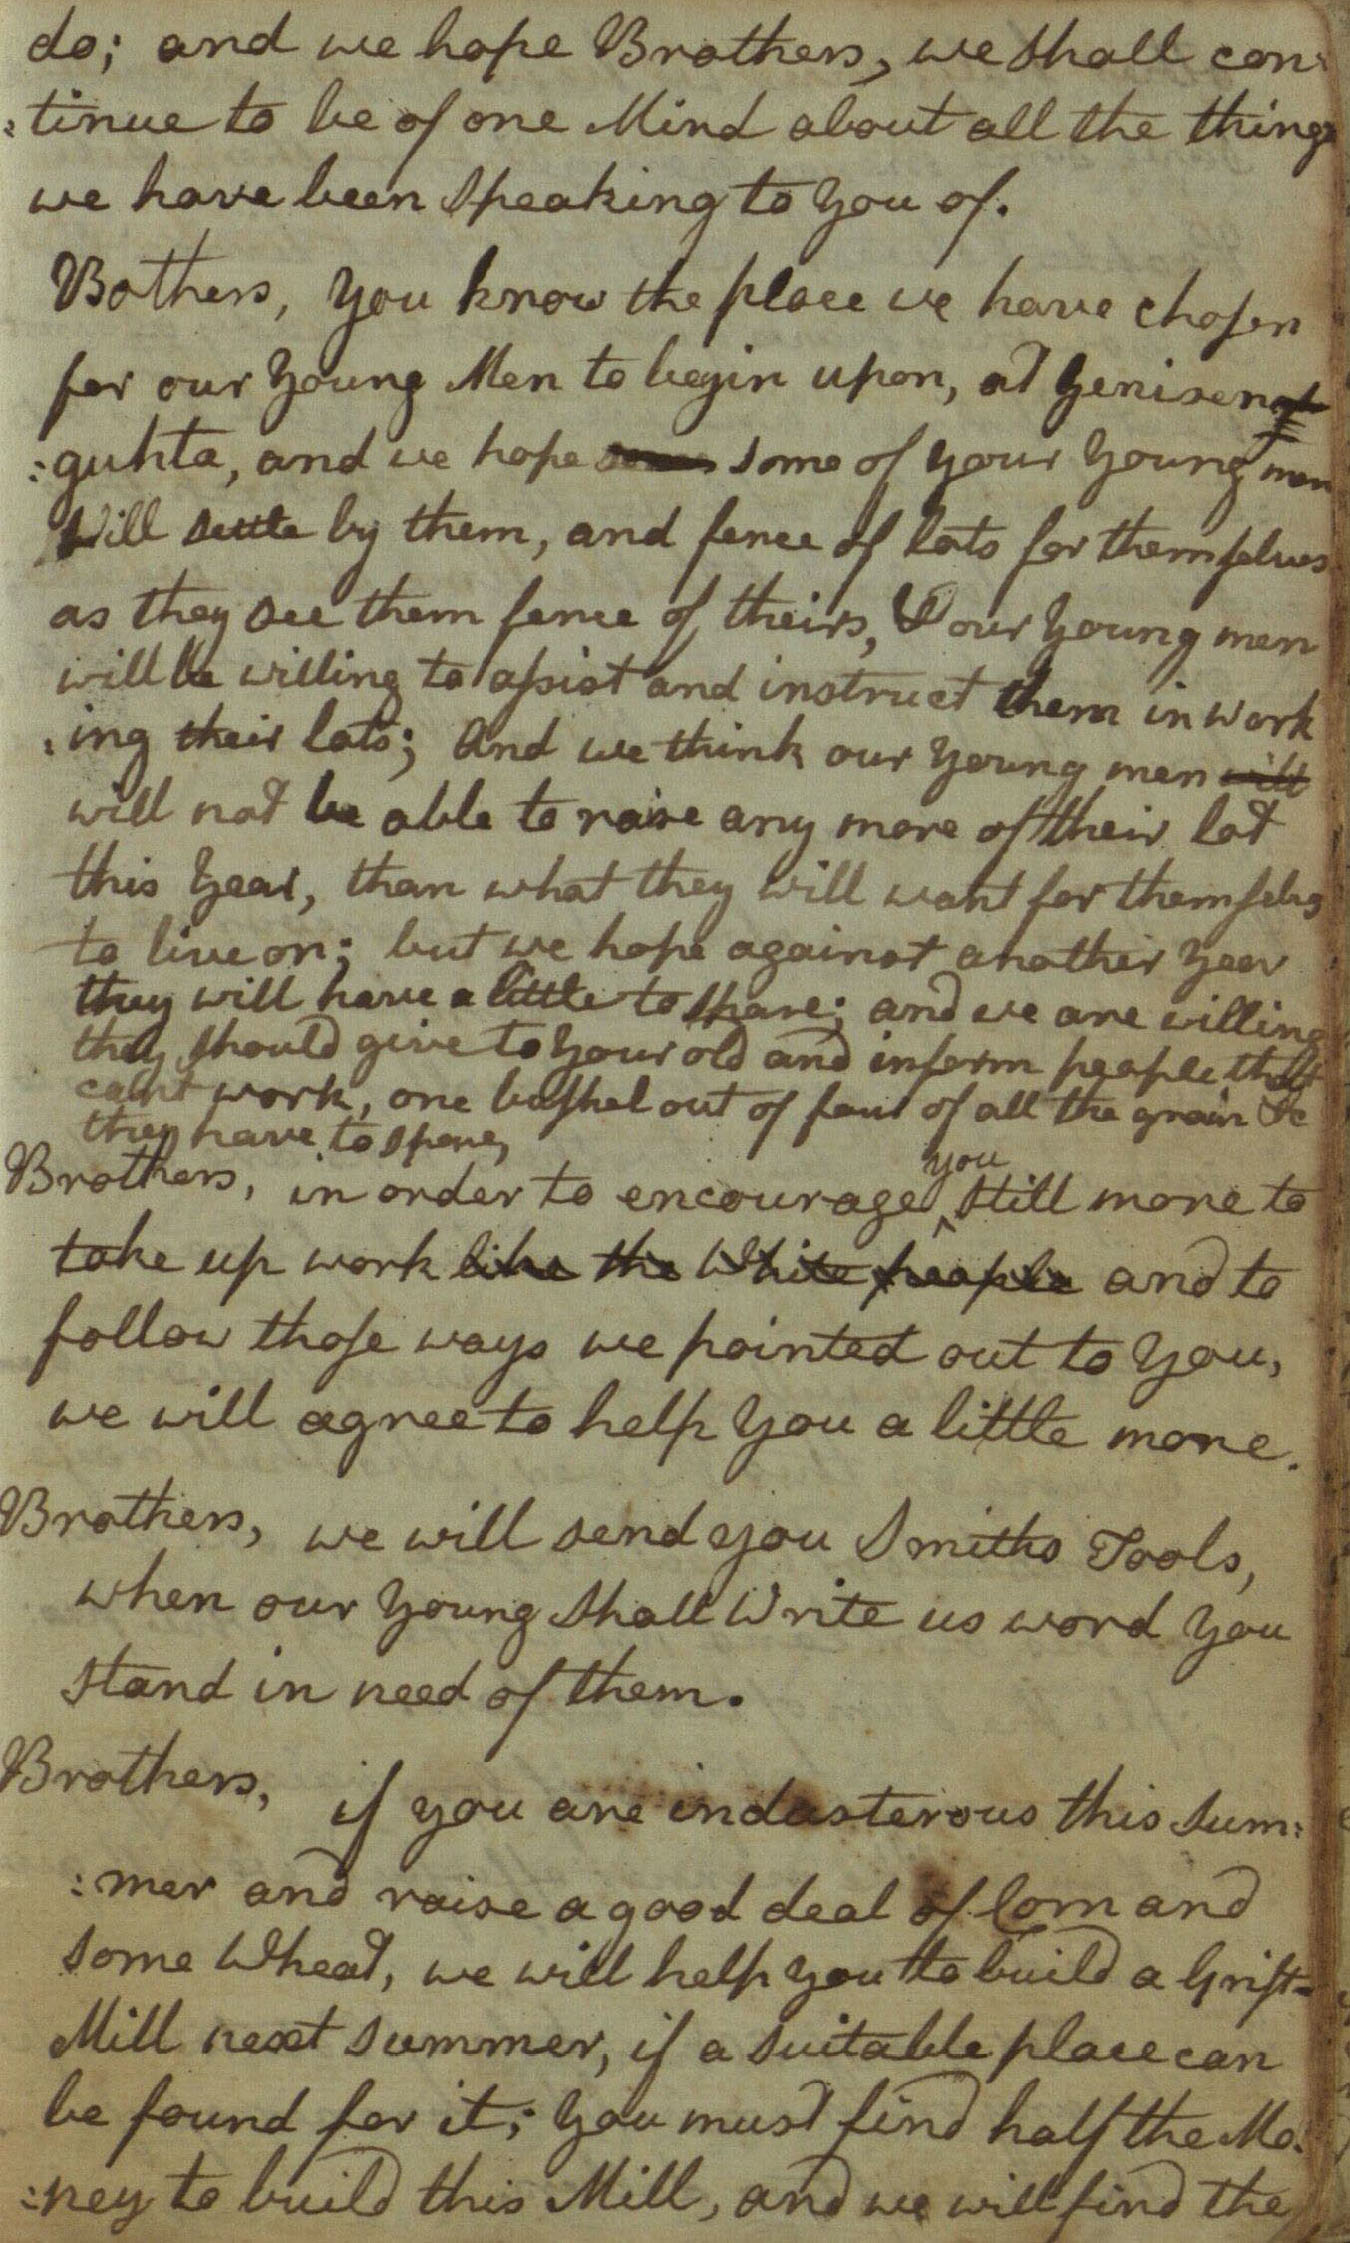 do; and we hope Brothers, we shall con:
:tinue to be of one Mind about all the things
we have been speaking to you of.
Bothers, you know the place we have chosen
for our young Men to begin upon, at Genisen
:guhta, and we hope some of your young men
Will settle by them, and fence of lots for themselves
as they see them fence of theirs, & our young men
will be willing to assist and instruct them in work
:ing their lots; And we think our young men will
will not be able to raise any more of their lot
this year, than what they will want for themselvs
to live on; but we hope against another year
they will have a little to spare; and we are willing
they should give to your old and inform people that
cant work, one bushel out of four of all the grain &c
they have to spare,
Brothers, in order to encourage you still more to
take up work like the White people and to
follow those ways we pointed out to you,
we will agree to help you a little more.
Brothers, we will send you Smiths Tools,
when our young shall Write us word you
stand in need of them.
Brothers, if you are industerous this Sum:
:mer and raise a good deal of Corn and
some Wheat, we will help you to build a Grist=
Mill next summer, if a suitable place can
be found for it; you must find half the Mo:
:ney to build this Mill, and we will find the